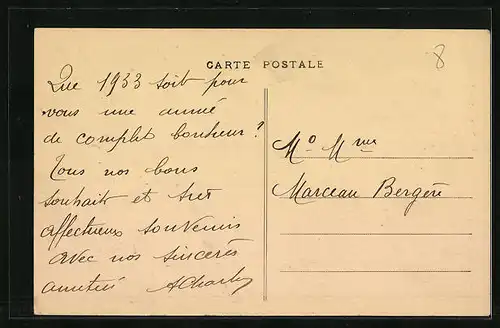 CARTE POSTALE
8
Que 1933 soit pour
vous une année
de complet bonheur ?
Tous nos bons
souhaits et très
affectueux souvenirs
avec nos sincères
amitiés
Mo Mme
Marceau Bergère